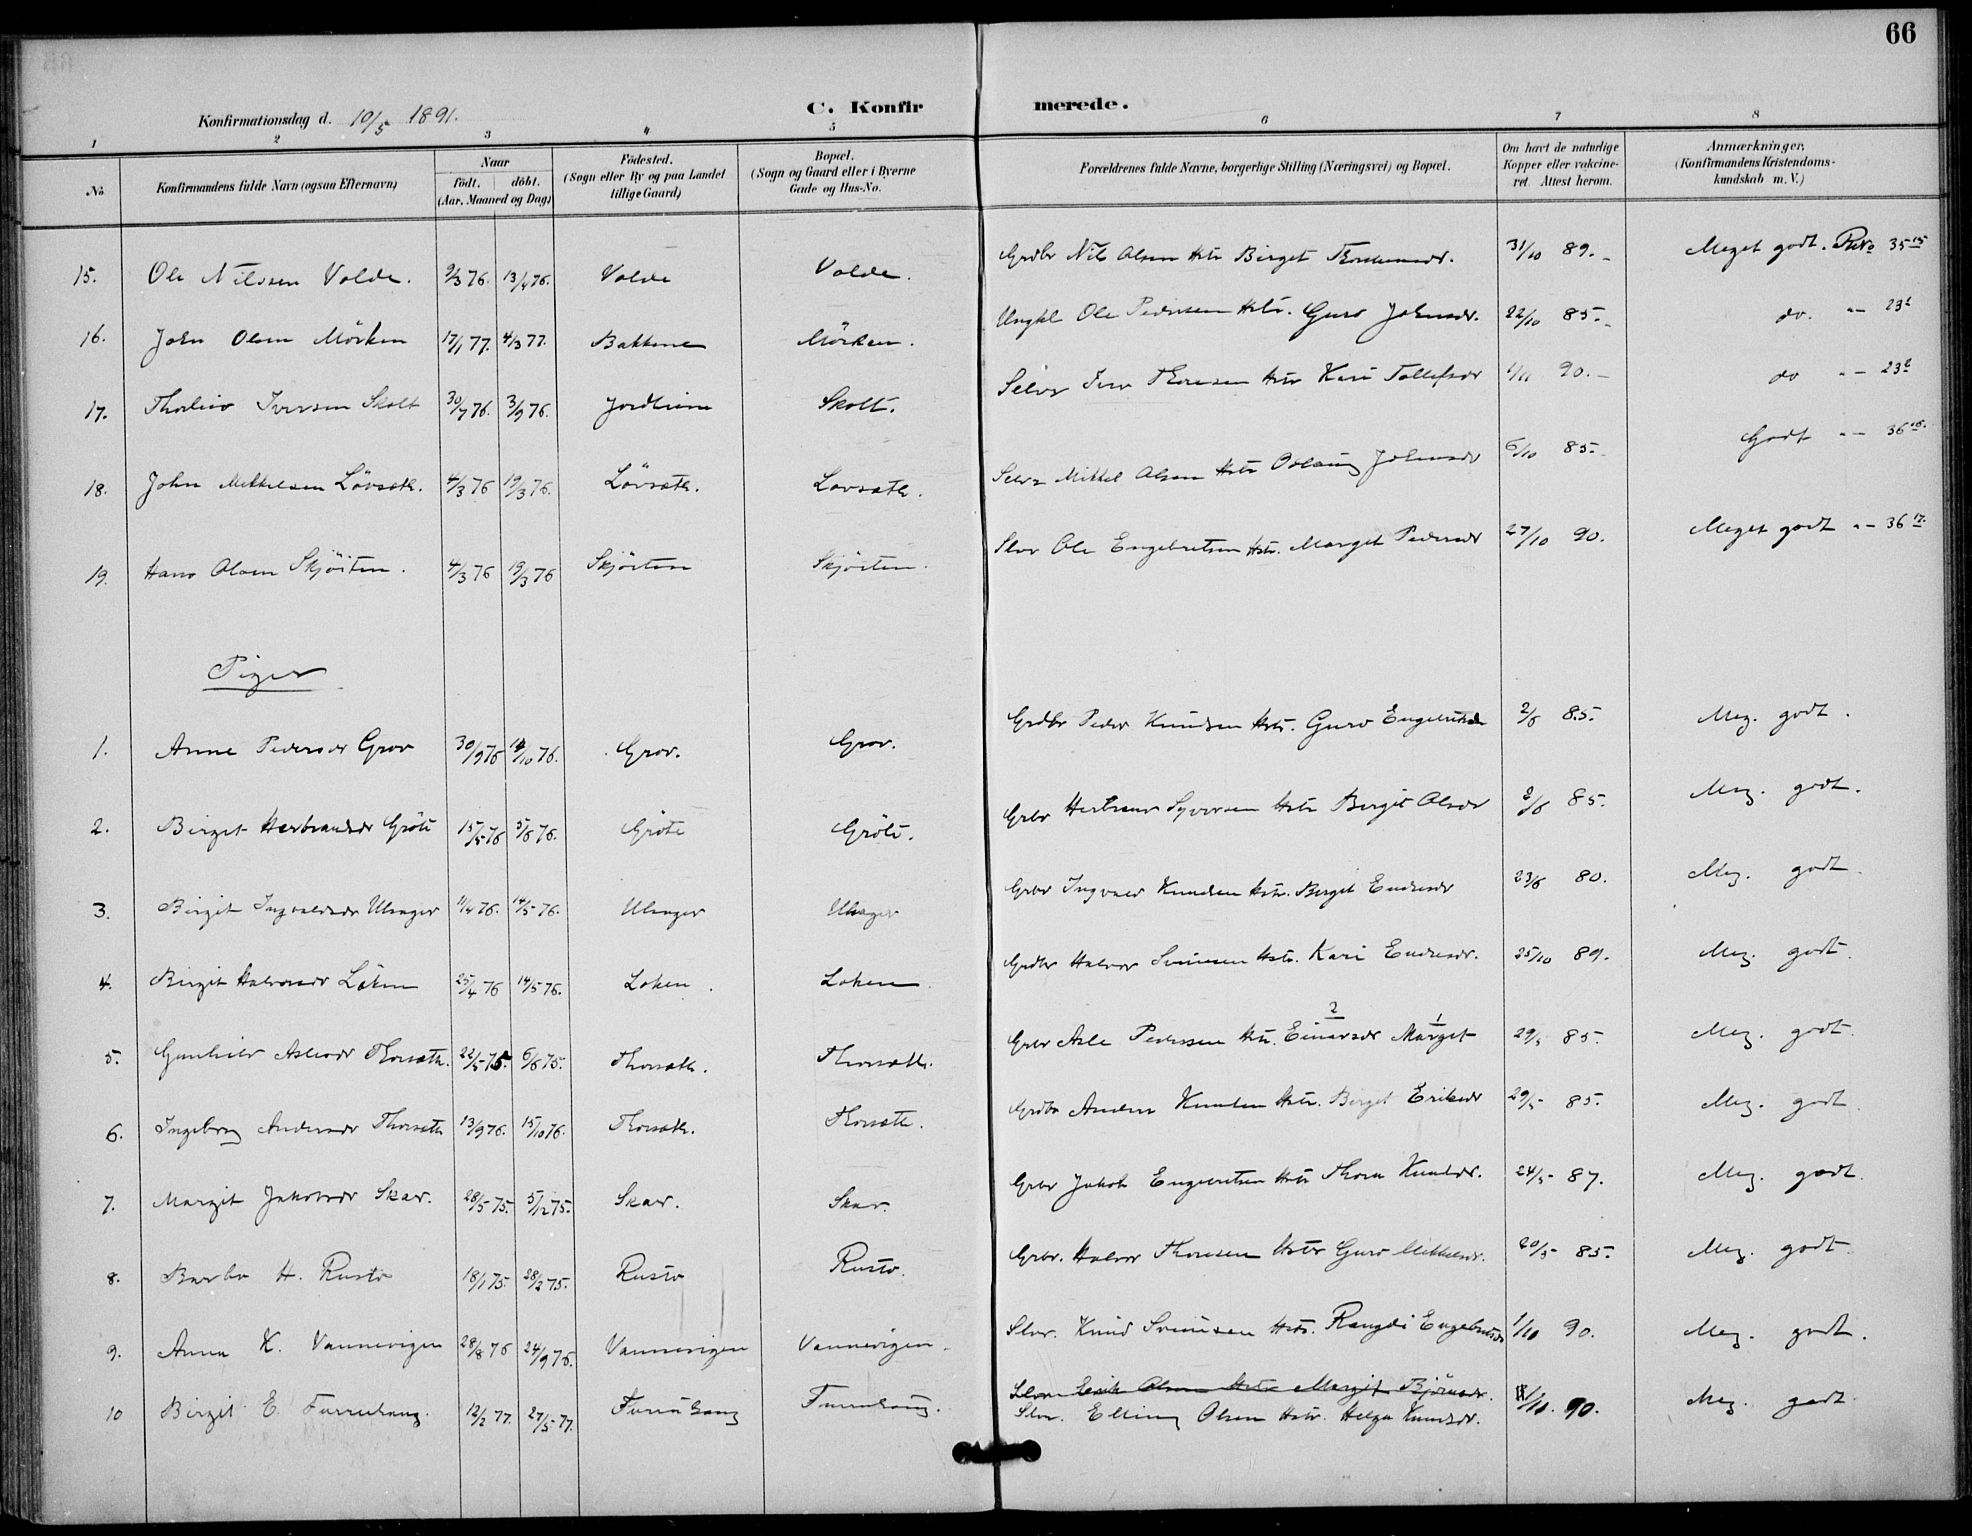 66
Konfirmationsdag d. 10/5 1891.
C. Konfirmerede.
1 2 3 4 5 6 7 8
No
Konfirmandens fulde Navn (ogsaa Efternavn)
Naar
födt. döbt.
(Aar, Maaned og Dag)
Födested.
(Sogn eller By og paa Landet
tillige Gaard)
Bopæl.
(Sogn og Gaard eller i Byerne
Gade og Hus-No.
Forældrenes fulde Navne, borgerlige Stilling (Næringsvei) og Bopæl.
Om havt de naturlige
Kopper eller vakcine-
ret Attest herom.
Anmærkninger.
(Konfirmandens Kristendoms-
kundskab m. V.)
15. Ole Nilssen Volde. 9/3 76. 13/4 76. Volde Volde. Grdbr Nils Olsen Hstr Birget 31/10 89. Meget godt. 35 15
16. John Olsen Mörken 17/1 77. 4/3 77. Bakkene Mörken. Ungkl Ole Pedersen Hstr. Guro Johnsdr. 22/10 85. do. "- 23
17. Iversen Skolt 30/7 76. 3/9 76. Skolt. Selvr Iver Thoresen Hstr Kari Tollefsdr 1/11 90. do "- 23
18. John Mikkelsen Lövsæth. 4/3 76 19/3 76. Lövsæth. Lovsæth. Selvr Mikkel Olsen Hstr Johnsdr 6/10 85. Godt "- 36
19. Hans Olsen Skjöiten. 4/3 76 19/3 76 Skjöiten Skjöiten. Slvr Ole Engebretsen Hstr. Marget Pedersdr 27/10 90. Meget godt "- 36 17.
Piger
1. Anne Pedersdr Grov 30/9 76 /10 76. Grov. Grov. Grdbr Peder Knudsen Hstr. Guro 2/6 85. Meg. godt.
2. Birget Herbrandsdr Gröte 15/5 76 5/6 76. Gröte Gröte. Grbr Syversen Hstr Birgit Olsdr 2/6 85. Meg. godt.
3. Birgit Ingvaldsdr Ulsager 11/4 76. 14/5 76. Ulsager Ulsager Grbr Ingvald Knudsen Hstr. Birgit Endresdr 23/6 80. Meg. godt.
4. Birgit Halvorsdr Löken 25/4 76 14/5 76. Loken. Loken. Grdbr Halvor Svensen Hstr. Kari Endresdr. 25/10 89. Meg. godt.
5. Gunhild Aslesdr Thorsæth. 22/5 75. 6/6 75. Thorsæth. Thorsæth. Grbr Asle Pedersen Hstr. Einarsdr 2 Marget 1 29/5 85. Meg. godt.
6. Ingeborg Andersdr Thorsæth 13/9 76. 15/10 76. Thorsæth. Thorsæth. Grdbr Anders Knudsen Hstr. Birgit Eriksdr 29/5 85. Meg. godt.
7. Margit Jakobsdr Skar. 28/5 75. 5/12 75. Skar. Skar. Grbr Jakob Engebretsen Hstr Thora Knudsdr. 24/5 87. Meg. godt.
8. Barbo H. Rusto 18/1 75. 28/2 75. Rusto Rusto. Grbr. Halvor Thoresen Hstr Guro Mikkelsdr. 20/5 85. Meg. godt.
9. Anna K. Vannevigen 28/8 76 24/9 76. Vannevigen Vannevigen. Slvr. Knud Svensen Hstr. Rangdi 1/10 90. Meg. godt.
Slvr Erik Olsen Hstr Margit Björnsdr.
10 Birgit E. Furruhaug. 12/2 77. 27/5 77. Furruhaug Furruhaug. Slvr. Elling Olsen Hstr. Helga Knudsdr. 1/10. 90. Meg. godt